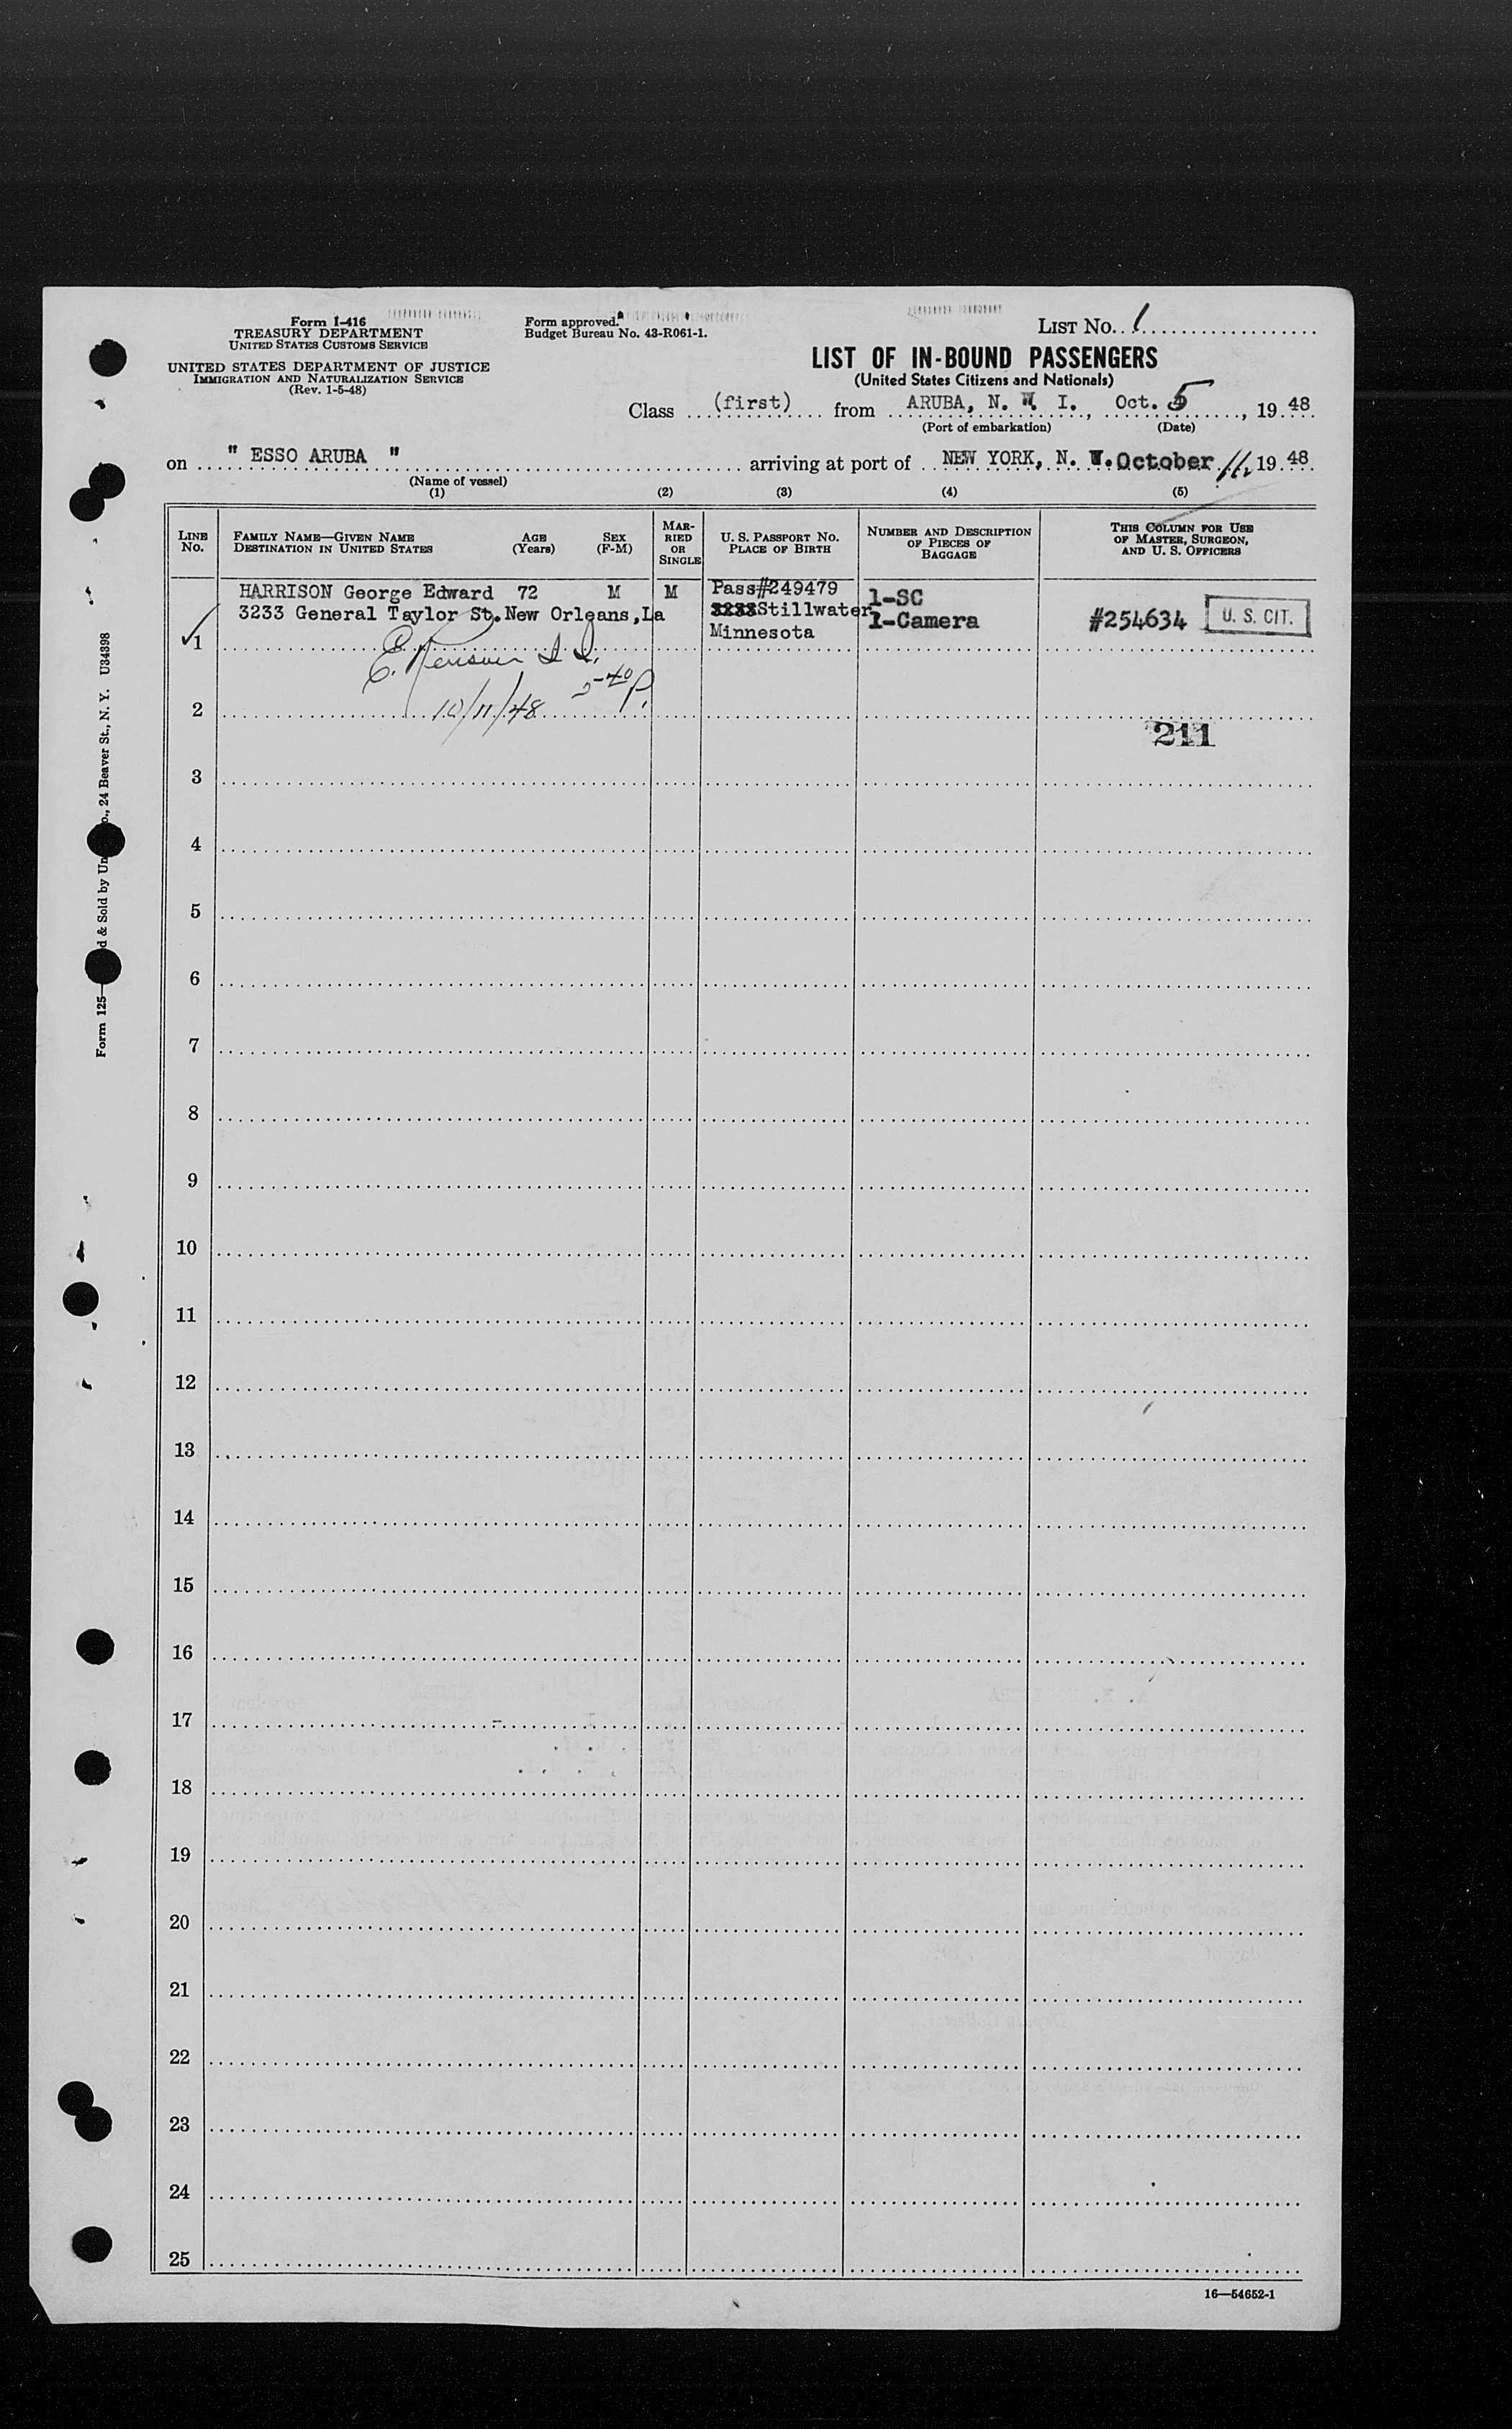 Form I-416
TREASURY DEPARTMENT
UNITED STATES CUSTOMS SERVICE
UNITED STATES DEPARTMENT OF JUSTICE
IMMIGRATION AND NATURALIZATION SERVICE
(Rev. 1-5-48)
Form approved.
Budget Bureau No. 43-R061-1.
LIST NO. 1
LIST OF IN-BOUND PASSENGERS
(United States Citizens and Nationals)
Class (first) from ARUBA, N. W. I., Oct. 5, 19 48
(Port of embarkation) (Date)
on " ESSO ARUBA " arriving at port of NEW YORK, N. Y. October 11, 19 48
(Name of vessel)
(1) (2) (3) (4) (5)
LINE NO.
FAMILY NAME—GIVEN NAME
DESTINATION IN UNITED STATES
AGE
(Years)
SEX
(F-M)
MAR-
RIED
OR
SINGLE
U. S. PASSPORT NO.
PLACE OF BIRTH
NUMBER AND DESCRIPTION
OF PIECES OF
BAGGAGE
THIS COLUMN FOR USE
OF MASTER, SURGEON,
AND U. S. OFFICERS
HARRISON George Edward 72 M M Pass#249479 1-SC
3233 General Taylor St. New Orleans, La Stillwater 1-Camera #254634 U. S. CIT.
1 Minnesota
10/11/48 2-40 P.
2
211
3
4
5
6
7
8
9
10
11
12
13
14
15
16
17
18
19
20
21
22
23
24
25
16—54652-1
Form 125— d & Sold by Un o., 24 Beaver St., N. Y. U34398